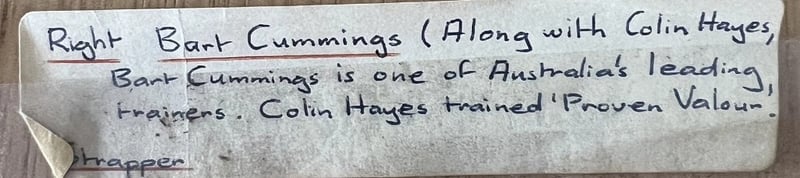 Right Bart Cummings (Along with Colin Hayes,
Bart Cummings is one of Australia's leading
trainers. Colin Hayes trained 'Proven Valour'.
Strapper